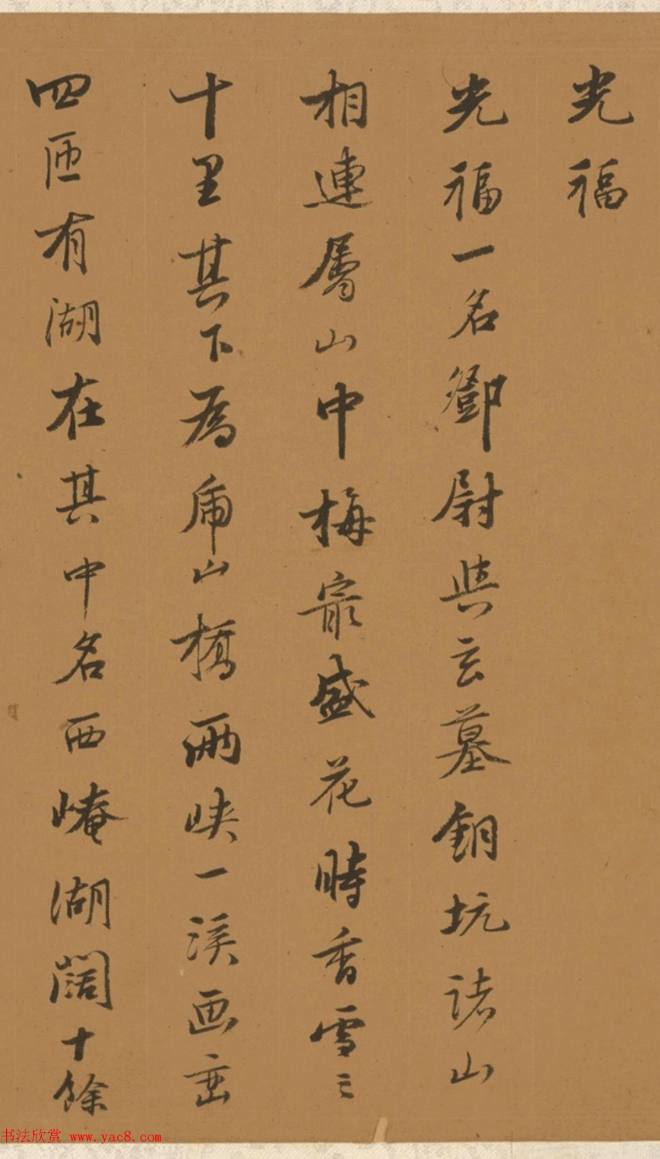 光福
光福一名鄧尉與玄墓銅坑諸山
相連屬山中梅最盛花時香雪三
十里其下為虎山橋兩峽一溪画峦
四匝有湖在其中名西崦湖闊十餘
书法欣赏 www.yac8.com